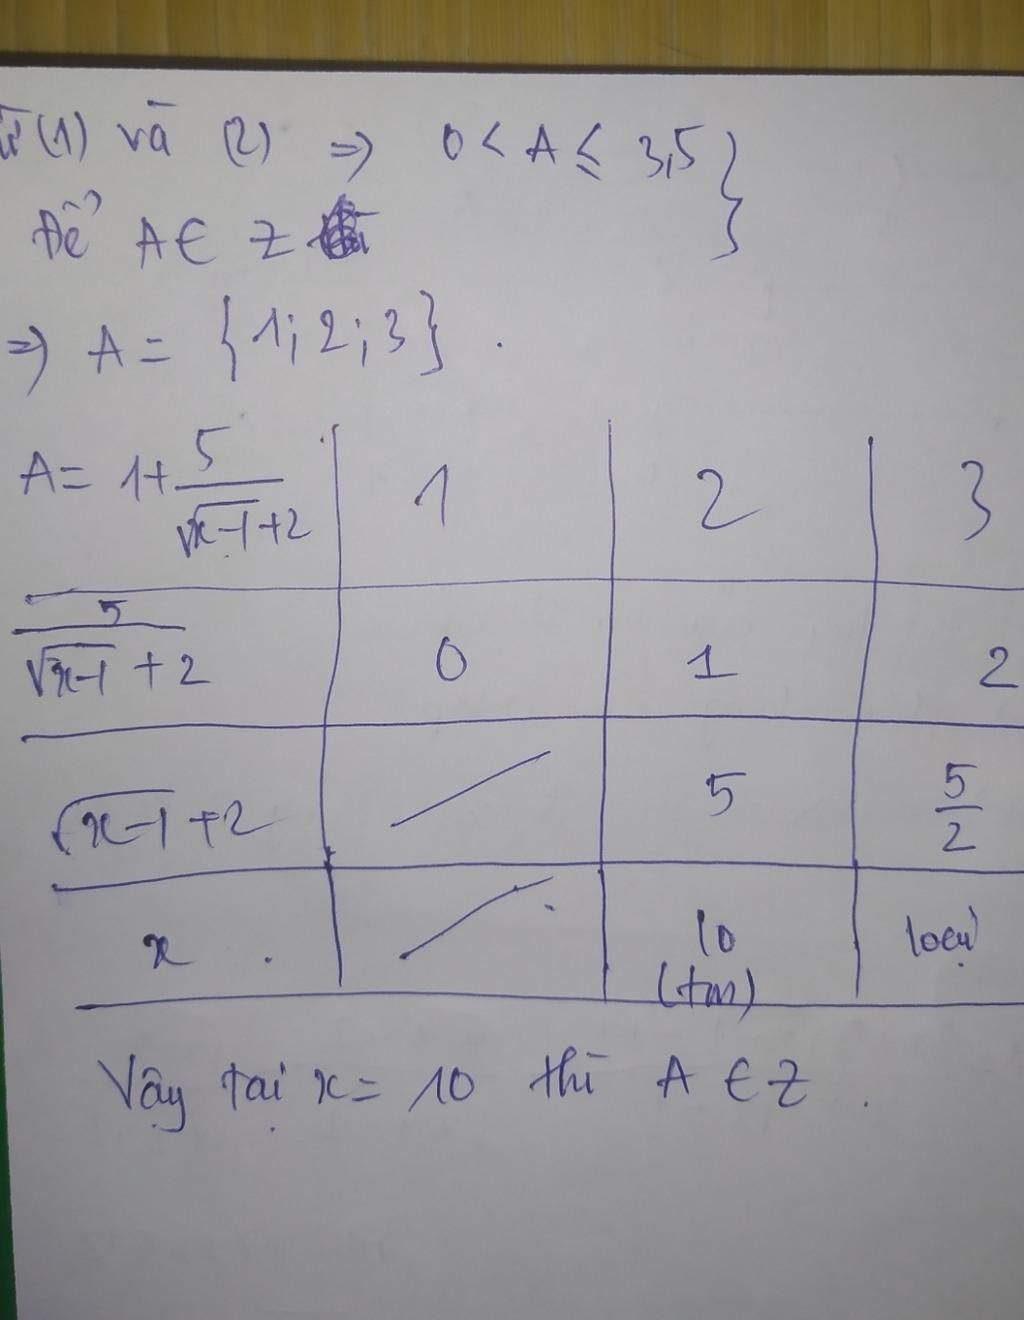 (1) và (2) => 0 < A ≤ 3,5 }
Để A ∈ Z
=> A = {1; 2; 3}.
A = 1 + 5/(√(x-1) + 2) | 1 | 2 | 3
5/(√(x-1) + 2) | 0 | 1 | 2
√(x-1) + 2 | / | 5 | 5/2
x. | / | 10 (tm) | loại
Vậy tại x = 10 thì A ∈ Z.